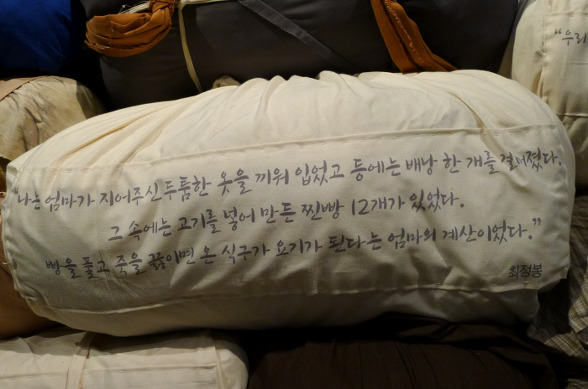 "나는 엄마가 지어주신 두툼한 옷을 끼워 입었고 등에는 배낭 한 개를 걸머졌다.
그 속에는 고기를 넣어 만든 찐빵 12개가 있었다.
빵을 풀고 죽을 끓이면 온 식구가 요기가 된다는 엄마의 계산이었다."
최정봉
"우리